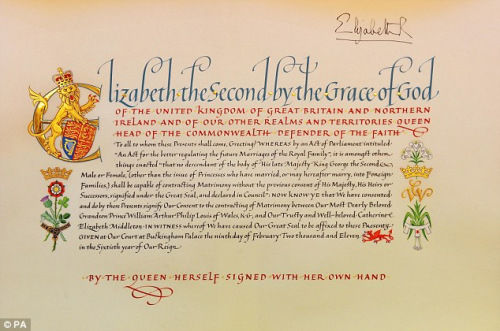 Elizabeth R
Elizabeth the Second by the Grace of God
OF THE UNITED KINGDOM OF GREAT BRITAIN AND NORTHERN
IRELAND AND OF OUR OTHER REALMS AND TERRITORIES QUEEN
HEAD OF THE COMMONWEALTH DEFENDER OF THE FAITH
To all to whom these Presents shall come, Greeting! WHEREAS by an Act of Parliament intituled
"An Act for the better regulating the future Marriages of the Royal Family", it is amongst other
things enacted "that no descendant of the body of His late Majesty King George the Second,
Male or Female, (other than the issue of Princesses who have married, or may hereafter marry, into Foreign
Families,) shall be capable of contracting Matrimony without the previous consent of His Majesty, His Heirs or
Successors, signified under the Great Seal, and declared in Council". NOW KNOW YE that We have consented
and do by these Presents signify Our Consent to the contracting of Matrimony between Our Most Dearly Beloved
Grandson Prince William Arthur Philip Louis of Wales, K.G., and Our Trusty and Well-beloved Catherine
Elizabeth Middleton. IN WITNESS whereof We have caused Our Great Seal to be affixed to these Presents.
GIVEN AT Our Court at Buckingham Palace the ninth day of February Two thousand and Eleven
in the Sixtieth year of Our Reign.
BY THE QUEEN HERSELF SIGNED WITH HER OWN HAND
W
© PA